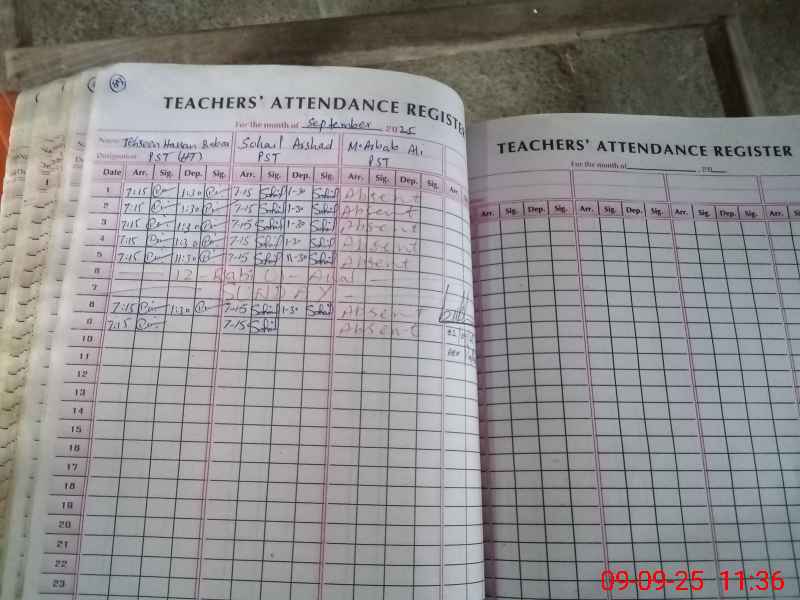 TEACHERS' ATTENDANCE REGISTER
For the month of September 2025
Name Tehseen Hassan Babar Sohail Arshad M. Arbab Ali
Designation PST (HT) PST PST
Date Arr. Sig. Dep. Sig. Arr. Sig. Dep. Sig. Arr. Sig. Dep. Sig. Arr. Sig.
1 7:15 1:30 7-15 Sohail 1-30 Sohail Absent
2 7:15 1:30 7-15 Sohail 1-30 Sohail Absent
3 7:15 1:30 7-15 Sohail 1-30 Sohail Absent
4 7:15 1:30 7-15 Sohail 1-30 Sohail Absent
5 7:15 11:30 7-15 Sohail 11-30 Sohail Absent
6 12 - Rabi U - Awal
7 SUNDAY
8 7:15 1:30 7-15 Sohail 1-30 Sohail Absent
9 7:15 7-15 Sohail Absent
10
11
12
13
14
15
16
17
18
19
20
21
22
23
TEACHERS' ATTENDANCE REGISTER
For the month of 20
Arr. Sig. Dep. Sig. Arr. Sig. Dep. Sig. Arr. Sig. Dep. Sig. Arr. Sig.
09-09-25 11:36